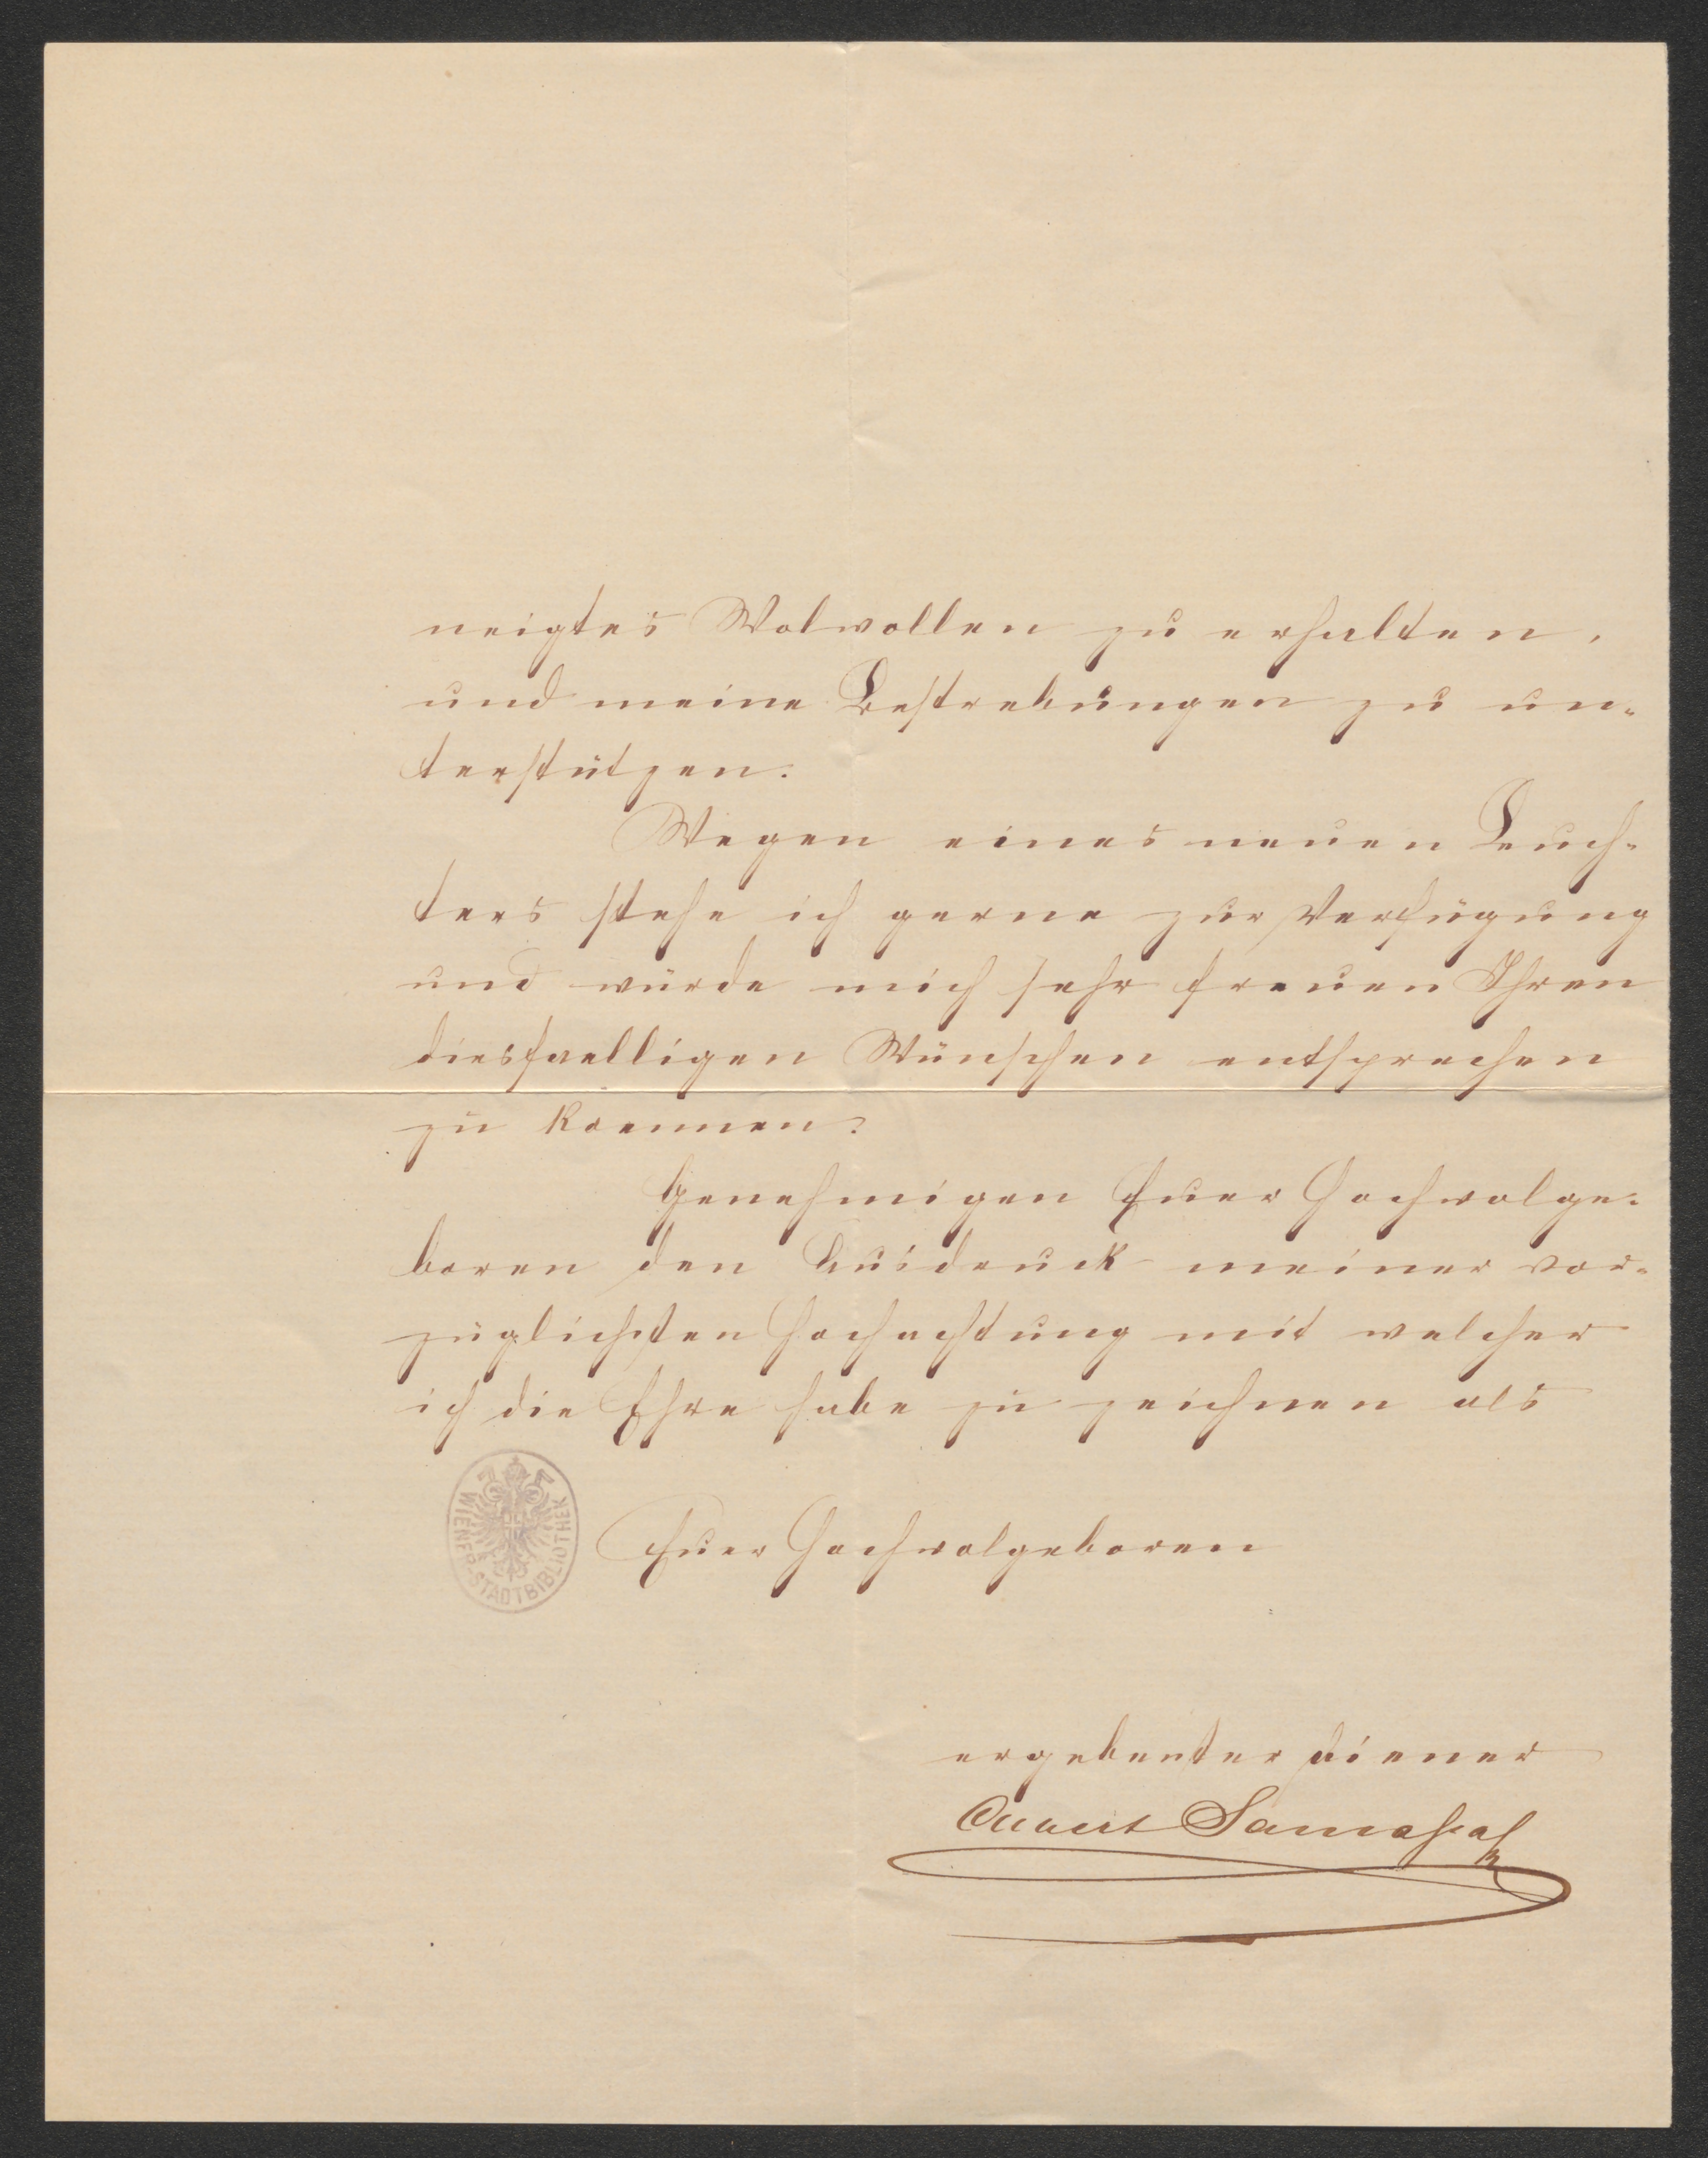 neigtes Wolwollen zu erhalten,
und meine Bestrebungen zu un-
terstützen.
Wegen eines neuen Leuch-
ters stehe ich gerne zur Verfügung
und würde mich sehr freuen Ihren
diesfaelligen Wünschen entsprechen
zu koennen.
Genehmigen Euer Hochwolge-
boren den Ausdruck meiner vor-
züglichsten Hochachtung mit welcher
ich die Ehre habe zu zeichnen als
WIENER STADTBIBLIOTHEK
Euer Hochwolgeboren
ergebenster Diener